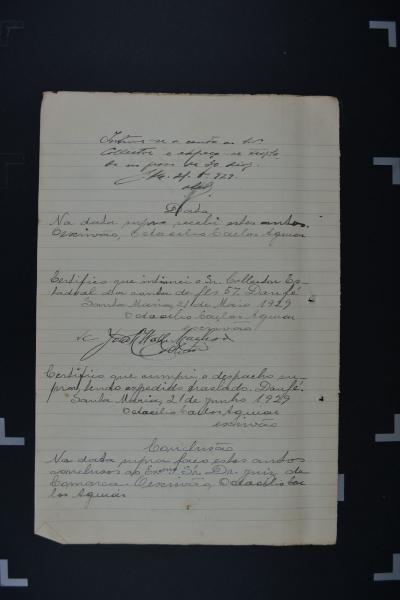 Intime-se a conta ao Sr.
Collector e expeça-se
de no prazo de 30 dias.
S. Mª. 21. 5. 929.
Data
Na data supra recebi estes autos.
Oescrivão, Octacilio Carlos Aguiar
Certifico que intimei o Sr. Collector Es-
tadoal da conta de fls 57. Dou fé
Santa Maria, 21 de Maio 1929
Octacilio Carlos Aguiar
escrivão
José
Certifico que cumpri o despacho su-
pra, tendo expedido traslado. Dou fé.
Santa Maria, 2 de junho 1929
Octacilio Carlos Aguiar
escrivão
Conclusão
Na data supra faço estes autos
conclusos ao Exmo. Sr. Dr. juiz da
Comarca. Oescrivão, Octacilio Car-
los Aguiar